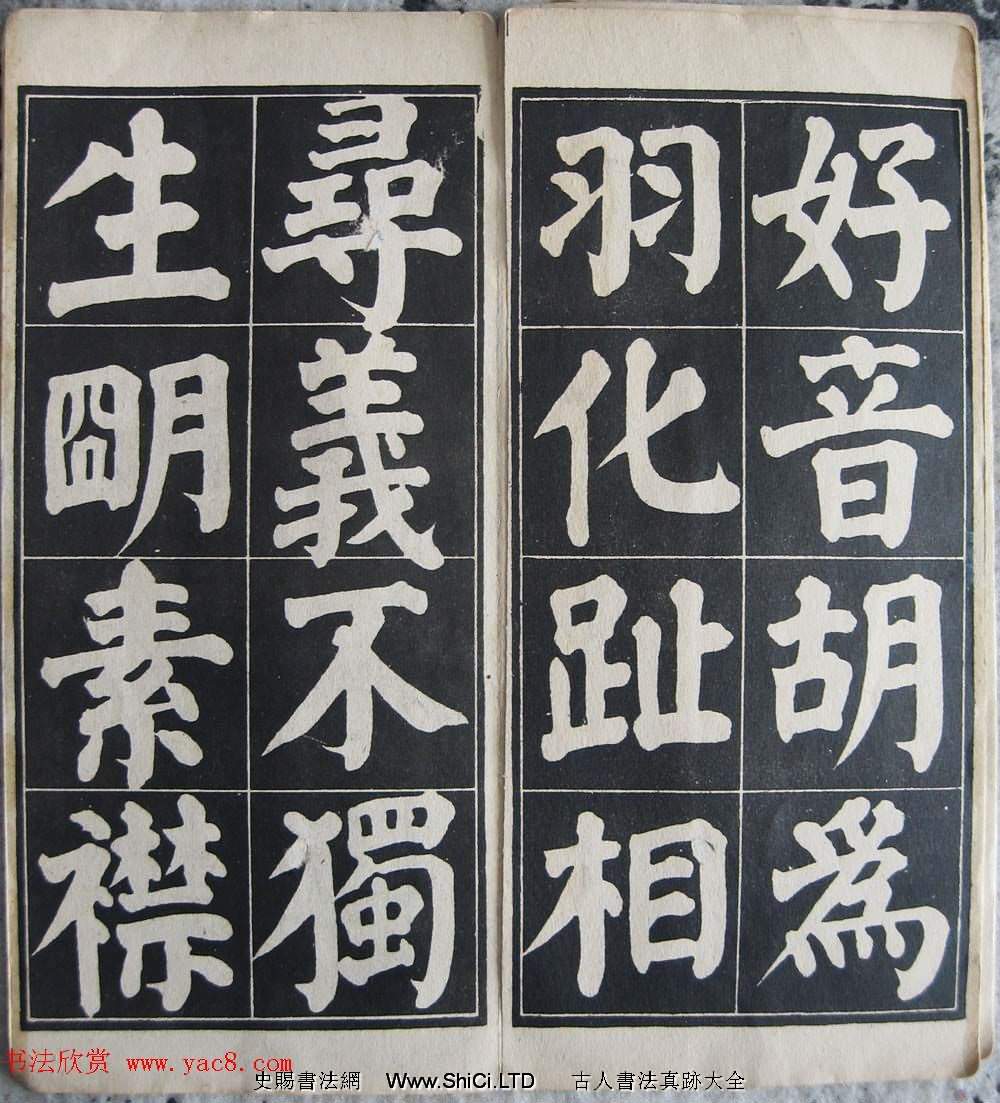 好音胡為
羽化趾相
尋義不獨
生明素襟
书法欣赏 www.yac8.com
史賜書法網 Www.ShiCi.LTD 古人書法真跡大全